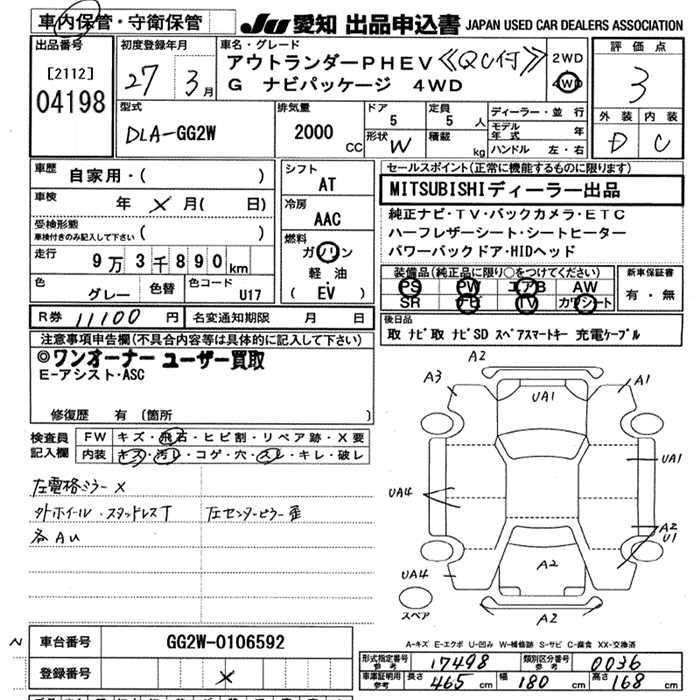 車内保管・守衛保管
JU 愛知 出品申込書 JAPAN USED CAR DEALERS ASSOCIATION
出品番号
[2112]
04198
初度登録年月
27 3月
車名・グレード
アウトランダーPHEV 《QC付》
G ナビパッケージ 4WD
2WD
4WD
評価点
3
外装 内装
D C
型式
DLA-GG2W
排気量
2000 CC
ドア
5
形状 W
定員
5 人
積載 kg
ディーラー・並行
モデル年式 年
ハンドル 左・右
車歴
自家用・( )
車検
年 × 月( 日)
受検形態
車検付きのみ記入して下さい ( )
走行
9万3千890km
色
グレー
色替
色コード
U17
シフト
AT
冷房
AAC
燃料
ガソリン
軽油
( EV )
セールスポイント(正常に機能するものに限ります)
MITSUBISHIディーラー出品
純正ナビ・TV・バックカメラ・ETC
ハーフレザーシート・シートヒーター
パワーバックドア・HIDヘッド
装備品(純正品に限り○をつけてください)
PS PW エアB AW
SR ナビ TV カワシート
新車保証書
有・無
R券 11100 円
名変通知期限 月 日
後日品
取 ナビ取 ナビSD スペアスマートキー 充電ケーブル
注意事項申告欄(不具合内容等は具体的に記入して下さい)
◎ワンオーナー ユーザー買取
E-アシスト・ASC
修復歴 有(箇所 )
検査員
記入欄
FW キズ・飛石・ヒビ割・リペア跡・X要
内装 キズ・汚レ・コゲ・穴・スレ・キレ・破レ
左電格ミラー ×
外ホイール・スタッドレスT 左センターピラー歪
各AU
A2
A3
A1
UA1
UA1
UA4
A2
U1
A2
UA4
スペア
A2
A-キズ E-エクボ U-凹み W-補修跡 S-サビ C-腐食 XX-交換済
車台番号 GG2W-0106592
登録番号 ×
形式指定番号
参考
17498
類別区分番号
参考
0036
車庫証明用
参考
長さ 465 cm
幅 180 cm
高さ 168 cm